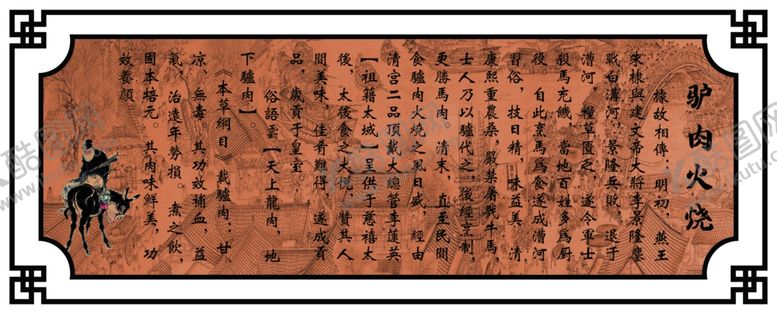 驴肉火烧
缘故相傳：明初，燕王
朱棣與建文帝大將李景隆鏖
戰白溝河，景隆兵敗，退于
漕河，糧草匱乏，遂令軍士
殺馬充饑，當地百姓多爲厨
役，自此烹馬爲食遂成漕河
習俗，技日精，味益美，清
康熙重農桑，嚴禁屠戮牛馬，
士人乃以驢代之，後經烹制，
更勝馬肉，清末，直至民間
食驢肉火燒之風日盛，經由
清宫二品頂戴大總管李蓮英
【祖籍太城】呈供于慈禧太
後，太後食之大悦，贊其人
間美味，佳肴難得，遂成貢
品，歲貢于皇室
俗語雲【天上龍肉，地
下驢肉】。
《本草綱目》載驢肉。甘、
凉，無毒，其功效補血，益
氣，治遠年勞損。煮之飲，
固本培元。其肉味鮮美，功
效養顔